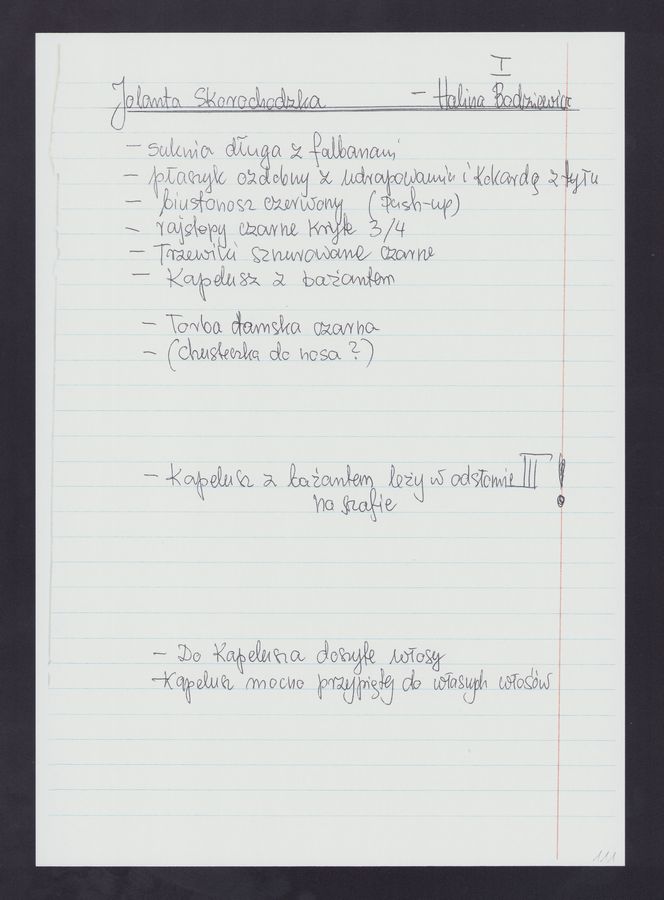 I
Jolanta Skorochodzka - Halina Bodziewicz
- suknia długa z falbanami
- płaszyk ozdobny z udrapowaniem i kokardą z tyłu
- biustonosz czerwony (Push-up)
- rajstopy czarne kryte 3/4
- Trzewiki sznurowane czarne
- Kapelusz z bażantem
- Torba damska czarna
- (Chusteczka do nosa ?)
- Kapelusz z bażantem leży w odsłonie III !
na szafie
- Do Kapelusza doszyte włosy
- Kapelusz mocno przypięty do własnych włosów
111